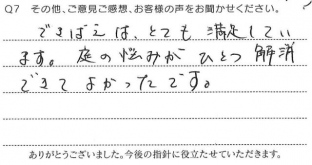 Q7 その他、ご意見ご感想、お客様の声をお聞かせください。
できばえは、とても満足してい
ます。庭の悩みがひとつ解消
できてよかったです。
ありがとうございました。今後の指針に役立たせていただきます。